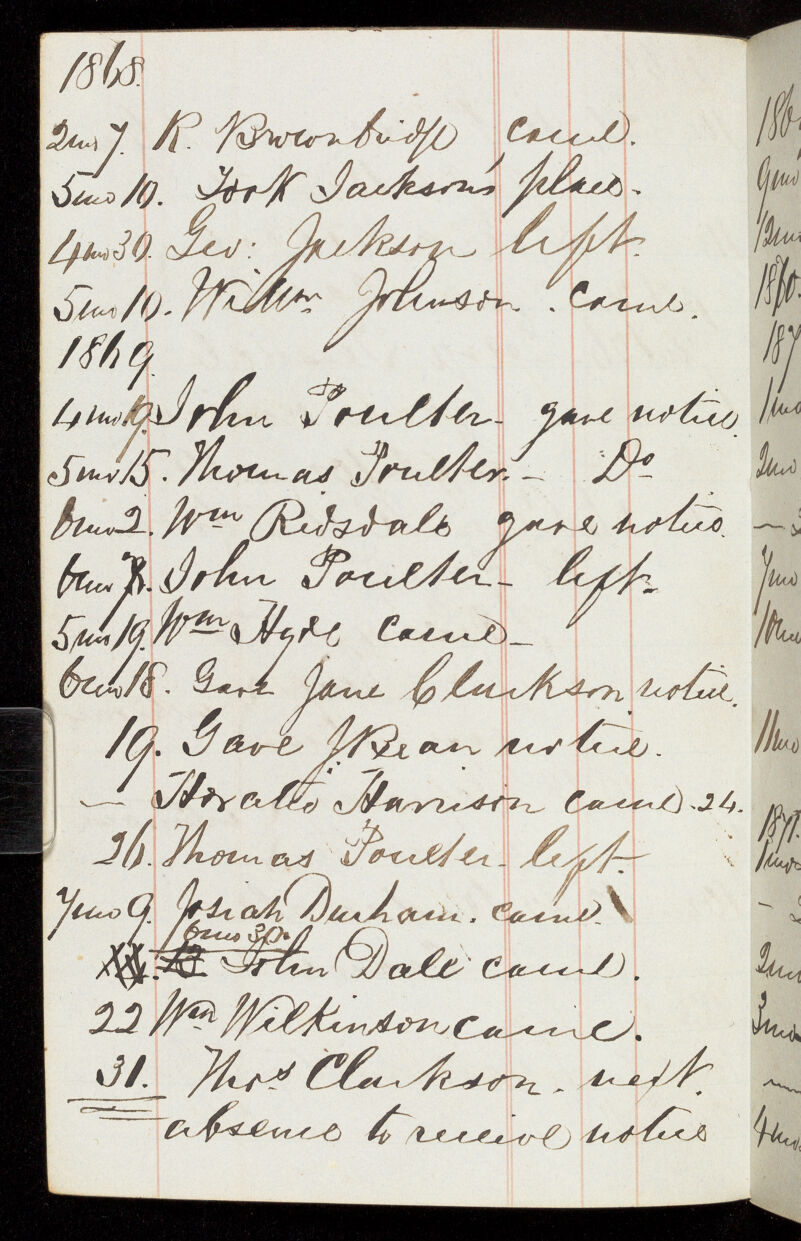 1868.
2mo 7. R. Brownbridge came.
5mo 10. Took Jackson's place.
4mo 30. Geo: Jackson left.
5mo 10. Willm Johnson. came.
1869
4mo 19. John Poulter - gave notice.
5mo 15. Thomas Poulter. - Do
6mo 2. Wm Ridsdale gave notice.
6mo John Poulter - left.
5mo 19. Wm Hyde came -
6mo 18. Gave Jane Clarkson notice.
19. Gave J. Bean notice.
— Horatio Harrison came. 24.
26. Thomas Poulter - left.
7mo 9. Josiah Durham. came.
6mo 30.
John Dale came.
22 Wm Wilkinson came.
31. Thos Clarkson. next.
absence to receive notice
186
9mo
12mo
1870.
187
1mo
2mo
7mo
10mo
11mo
1871.
1mo
2mo
3mo
4mo